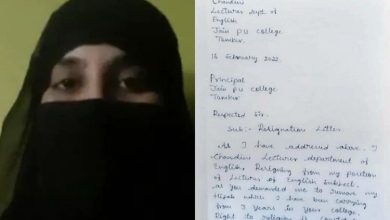 Chandini
Lecturer Dept. of
English
Jain PU college
Tumkur
16 February 2022
Principal
Jain PU college
Tumkur
Respected Sir.
Sub:- Resignation Letter
As I have addressed above I
Chandini Lecturer department of
English, Resigning from my position
of Lecturer of English subject.
as you demanded me to remove my
Hijab which I have been carrying
from 3 years in your college.
Right to religion is